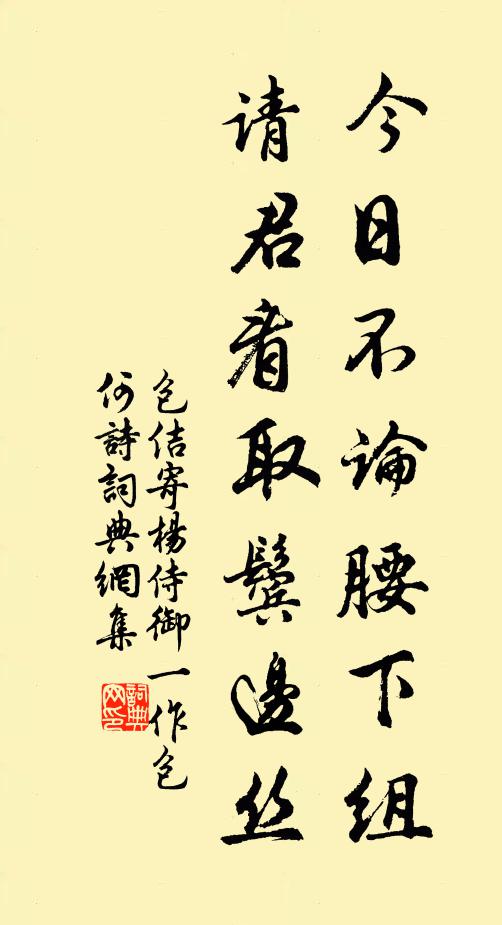 今日不论腰下组
请君看取鬓边丝
包佶寄楊侍御一作包
何詩詞典網集
詞典網印